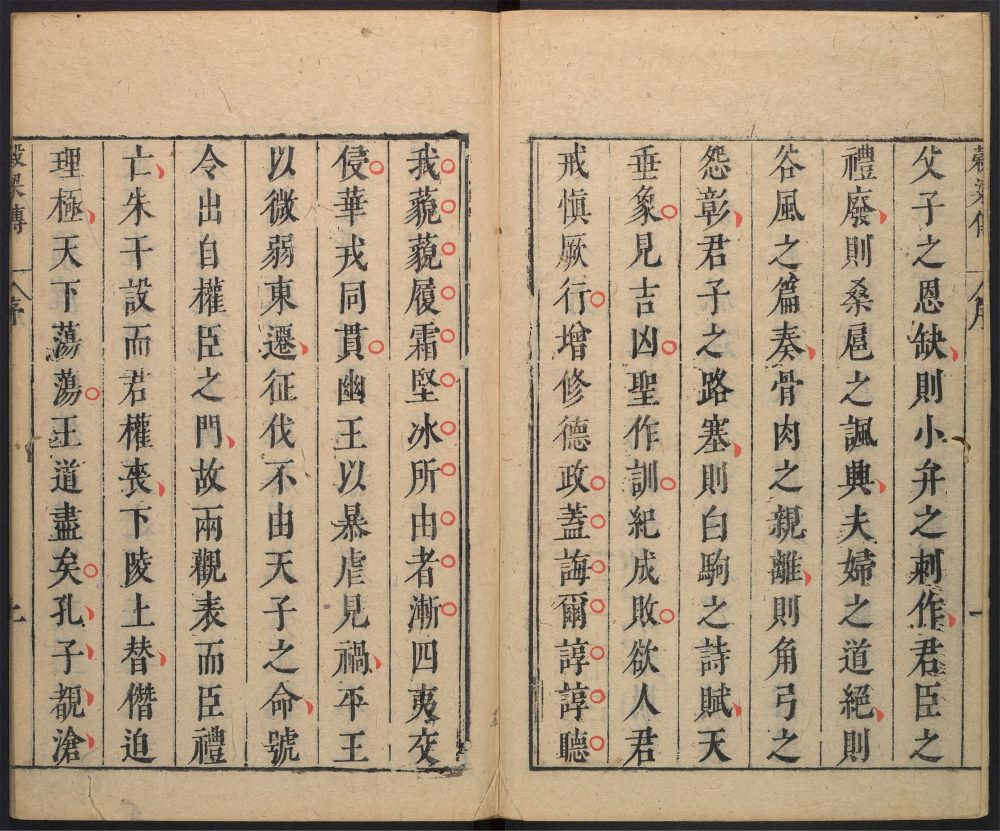 父子之恩缺則小弁之刺作君臣之
禮廢則桑扈之諷興夫婦之道絕則
谷風之篇奏骨肉之親離則角弓之
怨彰君子之路塞則白駒之詩賦天
垂象見吉凶聖作訓紀成敗欲人君
戒慎厥行增修德政蓋誨爾諄諄聽
我藐藐履霜堅冰所由者漸四夷交
侵華戎同貫幽王以暴虐見禍平王
以微弱東遷征伐不由天子之命號
令出自權臣之門故兩觀表而臣禮
亡朱干設而君權喪下陵上替僭迫
理極天下蕩蕩王道盡矣孔子覩滄
穀梁傳 序